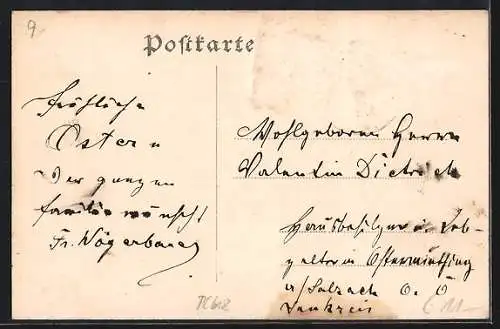 9
Postkarte
fröhliche
Ostern
der ganzen
familie wünscht
Fr. Wögerbauer
Wohlgeboren Herrn
Valentin Dietrich
Hausbesitzer i. Leb-
zelter in Ostermiething
a/Salzach O. Ö
Innkreis